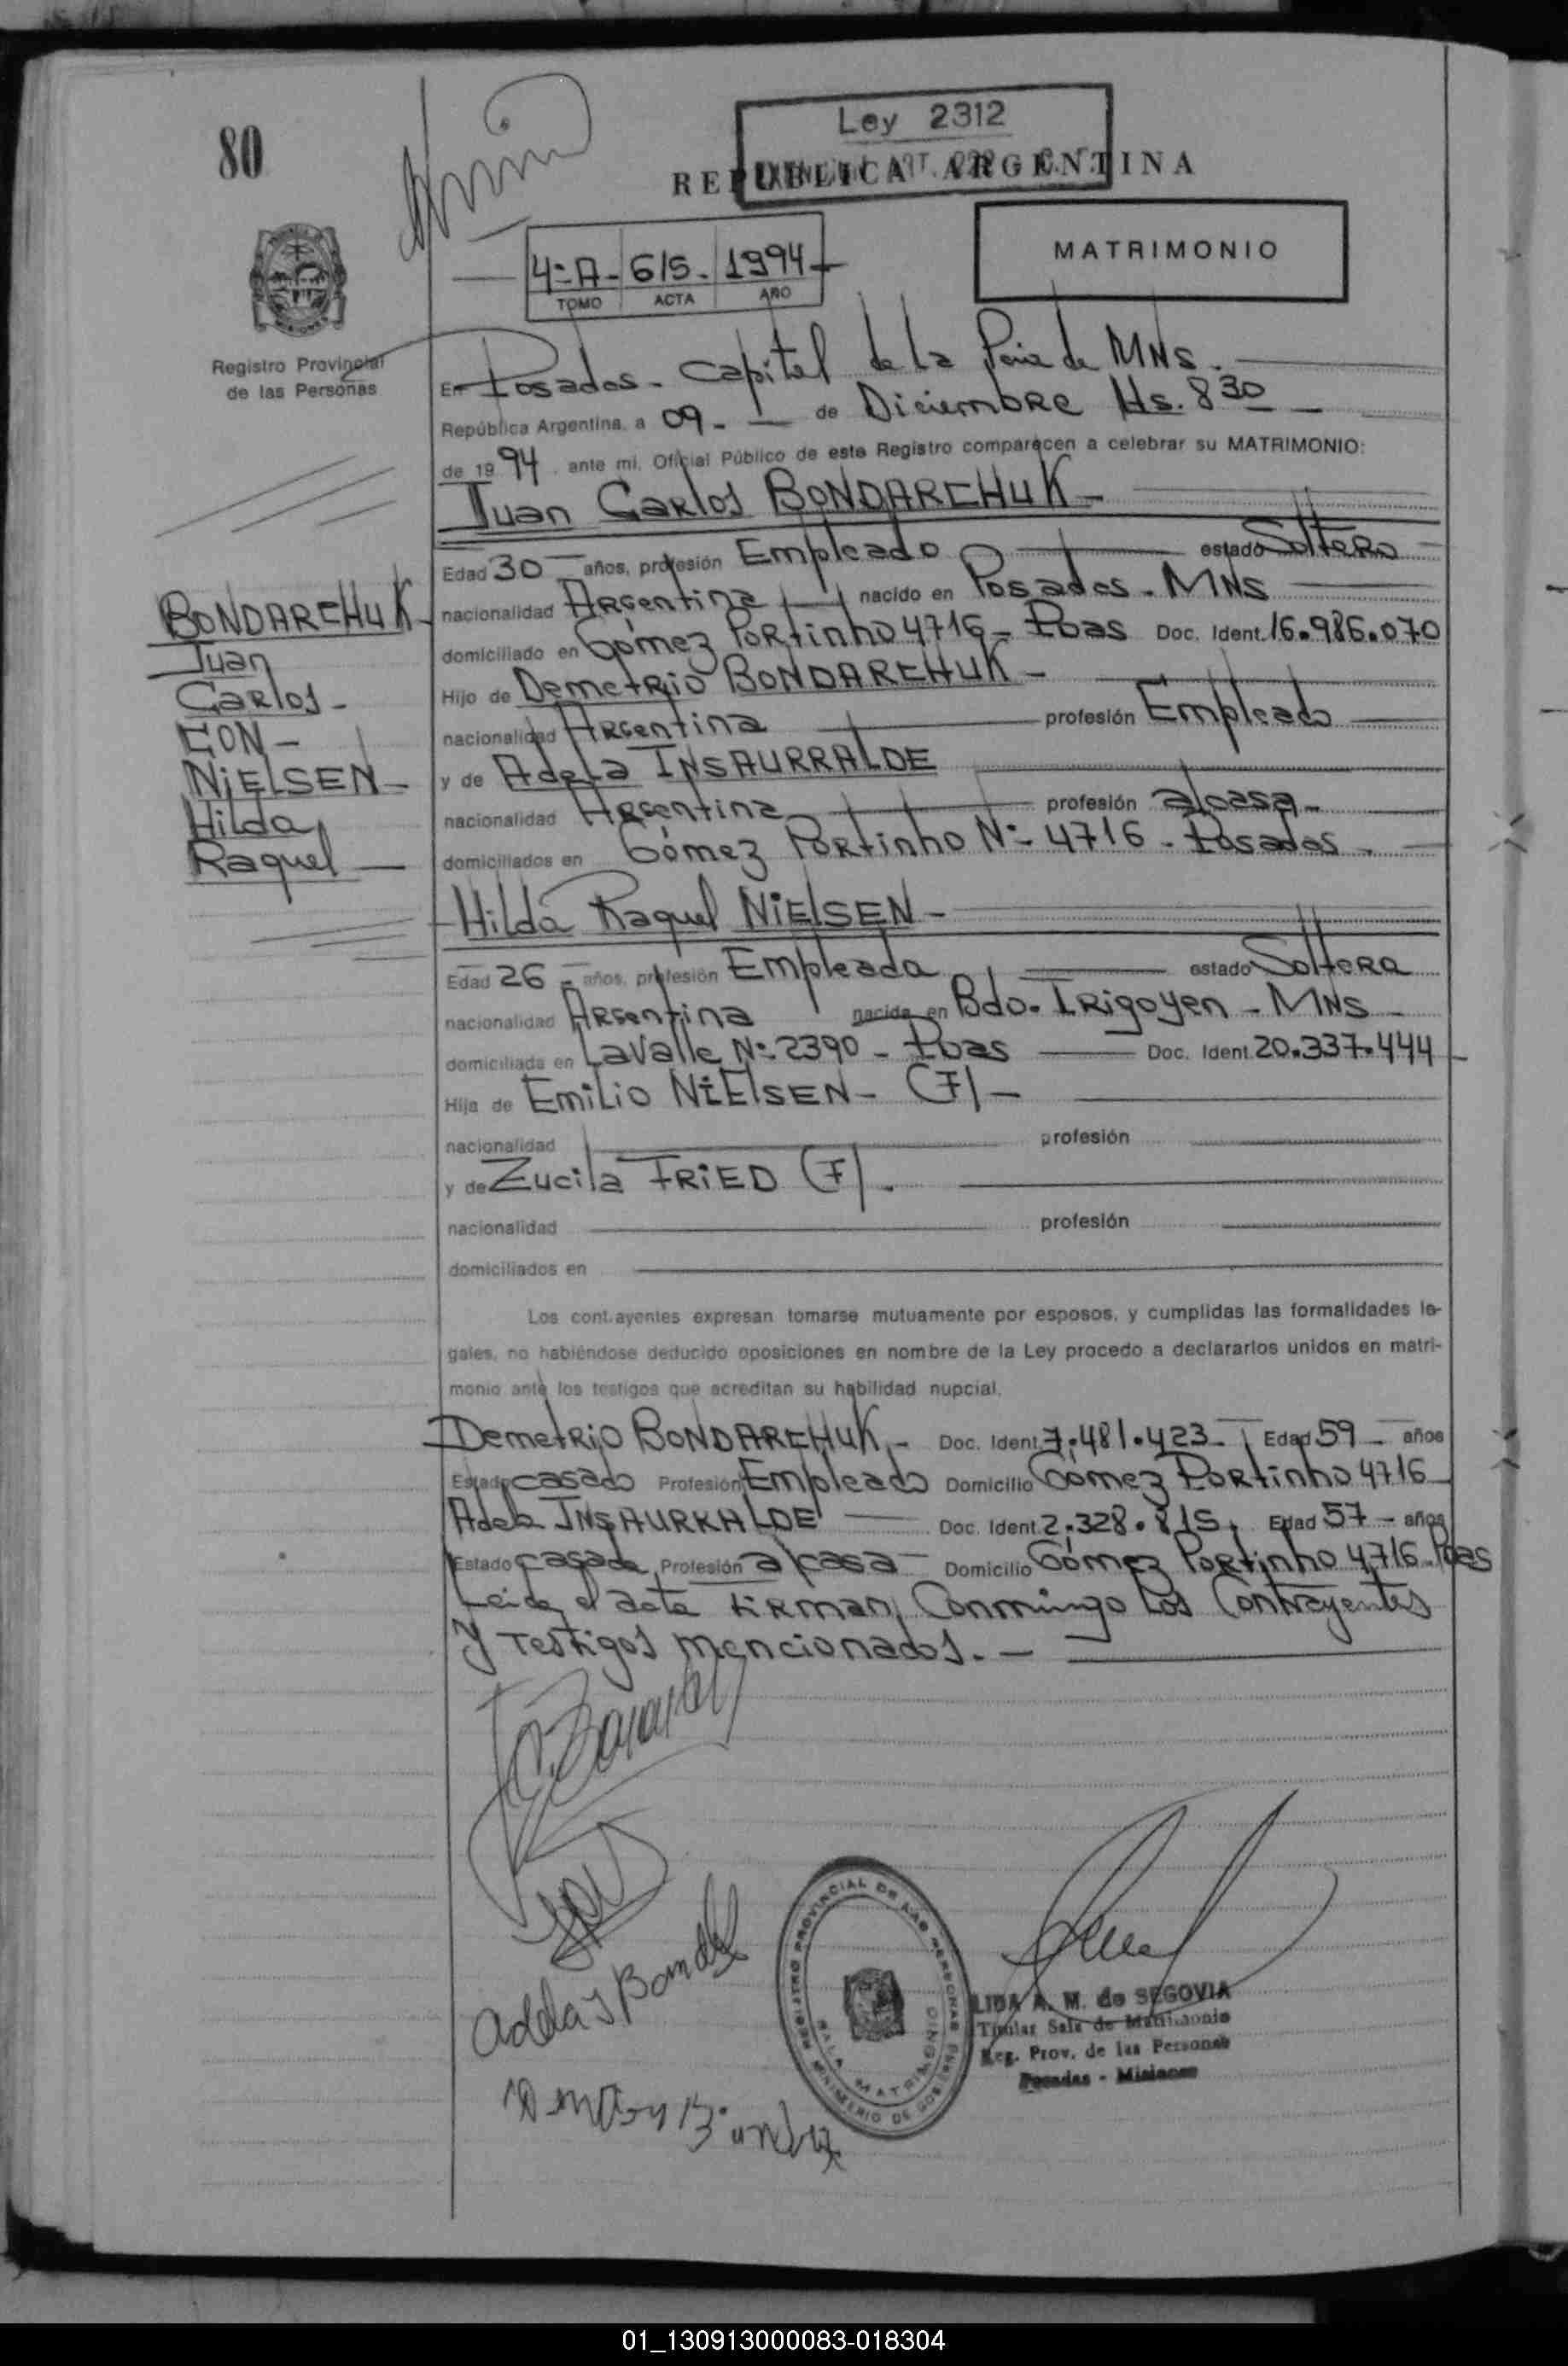 80
Ley 2312
REPUBLICA ARGENTINA
4-A- 615- 1994
TOMO ACTA AÑO
MATRIMONIO
Registro Provincial
de las Personas
En Posadas - Capital de la Pcia de MNS.
República Argentina, a 09 - de Diciembre Hs. 8 30
de 19 94 ante mi, Oficial Público de este Registro comparecen a celebrar su MATRIMONIO:
Juan Carlos BONDARCHUK -
Edad 30 años, profesión Empleado estado Soltero
nacionalidad Argentina nacido en Posadas - MNS
domiciliado en Gómez Portinho 4716 - Pdas Doc. Ident. 16.986.070
Hijo de Demetrio BONDARCHUK -
nacionalidad Argentina profesión Empleado
y de Adela INSAURRALDE
nacionalidad Argentina profesión a/casa -
domiciliados en Gómez Portinho Nº 4716 - Posadas -
BONDARCHUK -
Juan
Carlos -
CON -
NIELSEN -
Hilda
Raquel -
Hilda Raquel NIELSEN -
Edad 26 - años, profesión Empleada estado Soltera
nacionalidad Argentina nacida en Bdo. Irigoyen - MNS -
domiciliada en Lavalle Nº 2390 - Pdas Doc. Ident. 20.337.444
Hija de Emilio NIELSEN - (F) -
nacionalidad profesión
y de Zucila FRIED (F) .
nacionalidad profesión
domiciliados en
Los contrayentes expresan tomarse mutuamente por esposos, y cumplidas las formalidades le-
gales, no habiéndose deducido oposiciones en nombre de la Ley procedo a declararlos unidos en matri-
monio ante los testigos que acreditan su habilidad nupcial.
Demetrio BONDARCHUK - Doc. Ident. 7.481.423 - Edad 59 - años
Estado casado Profesión Empleado Domicilio Gómez Portinho 4716
Adela INSAURRALDE Doc. Ident. 2.328.815, Edad 57 - años
Estado casada Profesión a/casa - Domicilio Gómez Portinho 4716 - Pdas
Leida el acta firman Conmingo Los Contrayentes
y Testigos mencionados. -
REGISTRO PROVINCIAL DE LAS PERSONAS
SALA MATRIMONIO
MINISTERIO DE GOBIERNO
LIDA A. M. de SEGOVIA
Titular Sala de Matrimonio
Reg. Prov. de las Personas
Posadas - Misiones
01_130913000083-018304